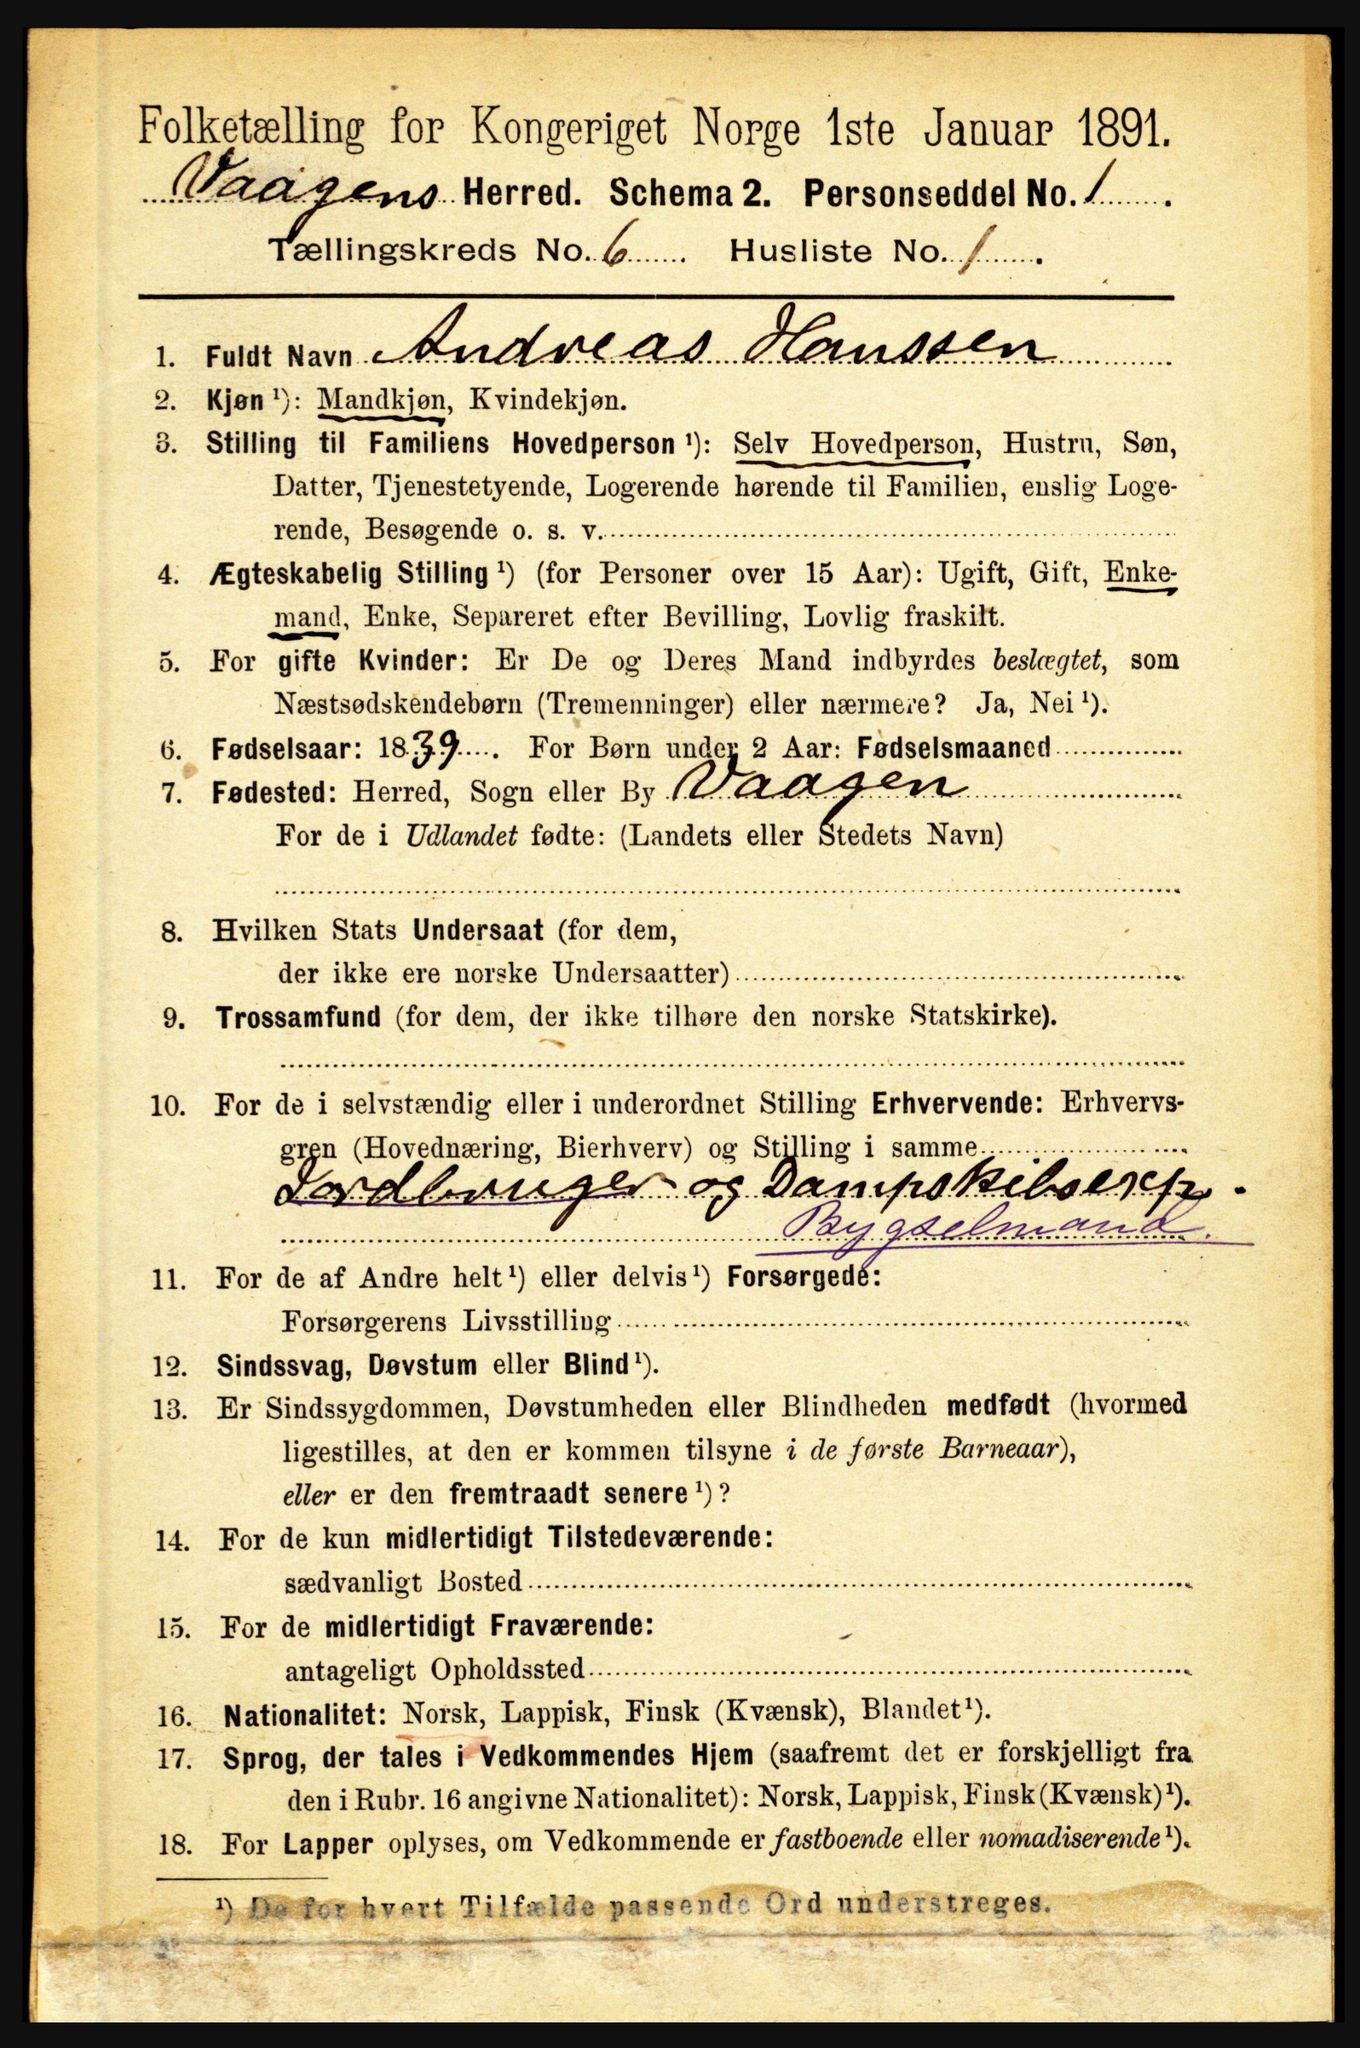 Folketælling for Kongeriget Norge 1ste Januar 1891.
Vaagens Herred. Schema 2. Personseddel No. 1.
Tællingskreds No. 6. Husliste No. 1.
1. Fuldt Navn Andreas Hanssen
2. Kjøn ¹): Mandkjøn, Kvindekjøn.
3. Stilling til Familiens Hovedperson ¹): Selv Hovedperson, Hustru, Søn,
Datter, Tjenestetyende, Logerende hørende til Familien, enslig Loge-
rende, Besøgende o. s. v.
4. Ægteskabelig Stilling ¹) (for Personer over 15 Aar): Ugift, Gift, Enke-
mand, Enke, Separeret efter Bevilling, Lovlig fraskilt.
5. For gifte Kvinder: Er De og Deres Mand indbyrdes beslægtet, som
Næstsødskendebørn (Tremenninger) eller nærmere? Ja, Nei ¹).
6. Fødselsaar: 1839. For Børn under 2 Aar: Fødselsmaaned
7. Fødested: Herred, Sogn eller By Vaagen
For de i Udlandet fødte: (Landets eller Stedets Navn)
8. Hvilken Stats Undersaat (for dem,
der ikke ere norske Undersaatter)
9. Trossamfund (for dem, der ikke tilhøre den norske Statskirke).
10. For de i selvstændig eller i underordnet Stilling Erhvervende: Erhvervs-
gren (Hovednæring, Bierhverv) og Stilling i samme
Jordbruger og Dampskibsexp.
Bygselmand.
11. For de af Andre helt ¹) eller delvis ¹) Forsørgede:
Forsørgerens Livsstilling
12. Sindssvag, Døvstum eller Blind ¹).
13. Er Sindssygdommen, Døvstumheden eller Blindheden medfødt (hvormed
ligestilles, at den er kommen tilsyne i de første Barneaar),
eller er den fremtraadt senere ¹)?
14. For de kun midlertidigt Tilstedeværende:
sædvanligt Bosted
15. For de midlertidigt Fraværende:
antageligt Opholdssted
16. Nationalitet: Norsk, Lappisk, Finsk (Kvænsk), Blandet ¹).
17. Sprog, der tales i Vedkommendes Hjem (saafremt det er forskjelligt fra
den i Rubr. 16 angivne Nationalitet): Norsk, Lappisk, Finsk (Kvænsk) ¹).
18. For Lapper oplyses, om Vedkommende er fastboende eller nomadiserende ¹).
¹) De for hvert Tilfælde passende Ord understreges.